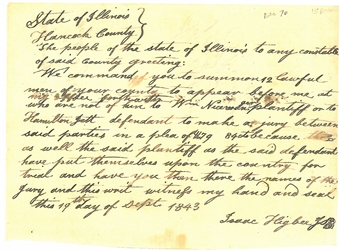 State of Illinois }
Hancock County }
The people of the state of Illinois to any constable
of said County greeting:
We command you to summon 12 lawful
men of your county to appear before me at
my office forthwith
who are not of kin to Wm plaintiff or to
Hamilton Jett defendant to make a jury between
said parties in a plea of because
as well the said plaintiff as the said defendant
have put themselves upon the country for
trial and have you then there the names of the
Jury and this writ witness my hand and seal
this 19th day of Sept 1843
Isaac Higbee J.P.